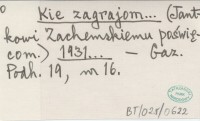 Kie zagrajom... (Jant-
kowi Zachemskiemu poświę-
com.) 1931... — Gaz.
Podh. 19, nr 16.
BT/028/0622